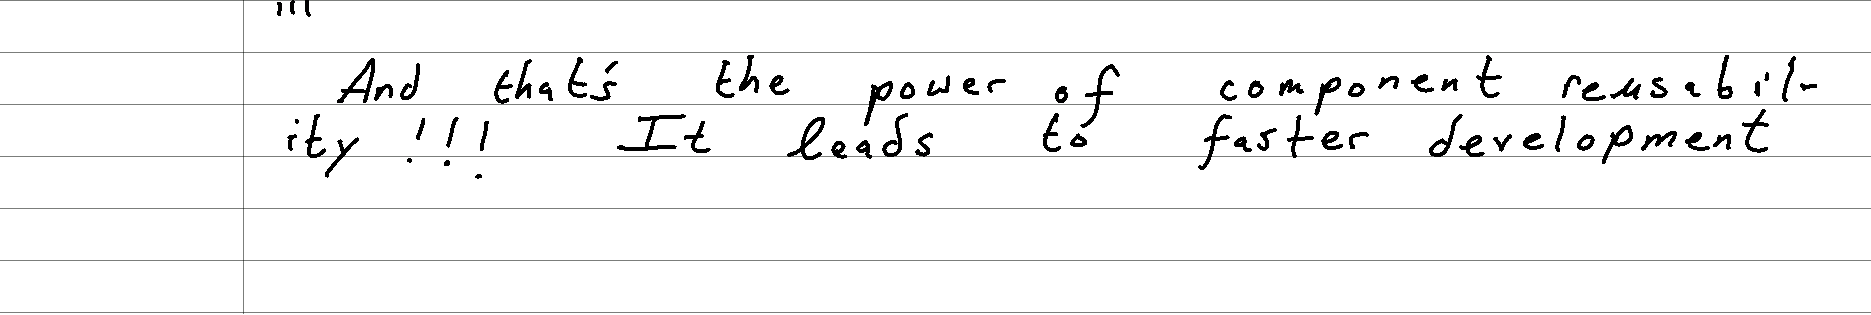 And that's the power of component reusabil-
ity!!! It leads to faster development